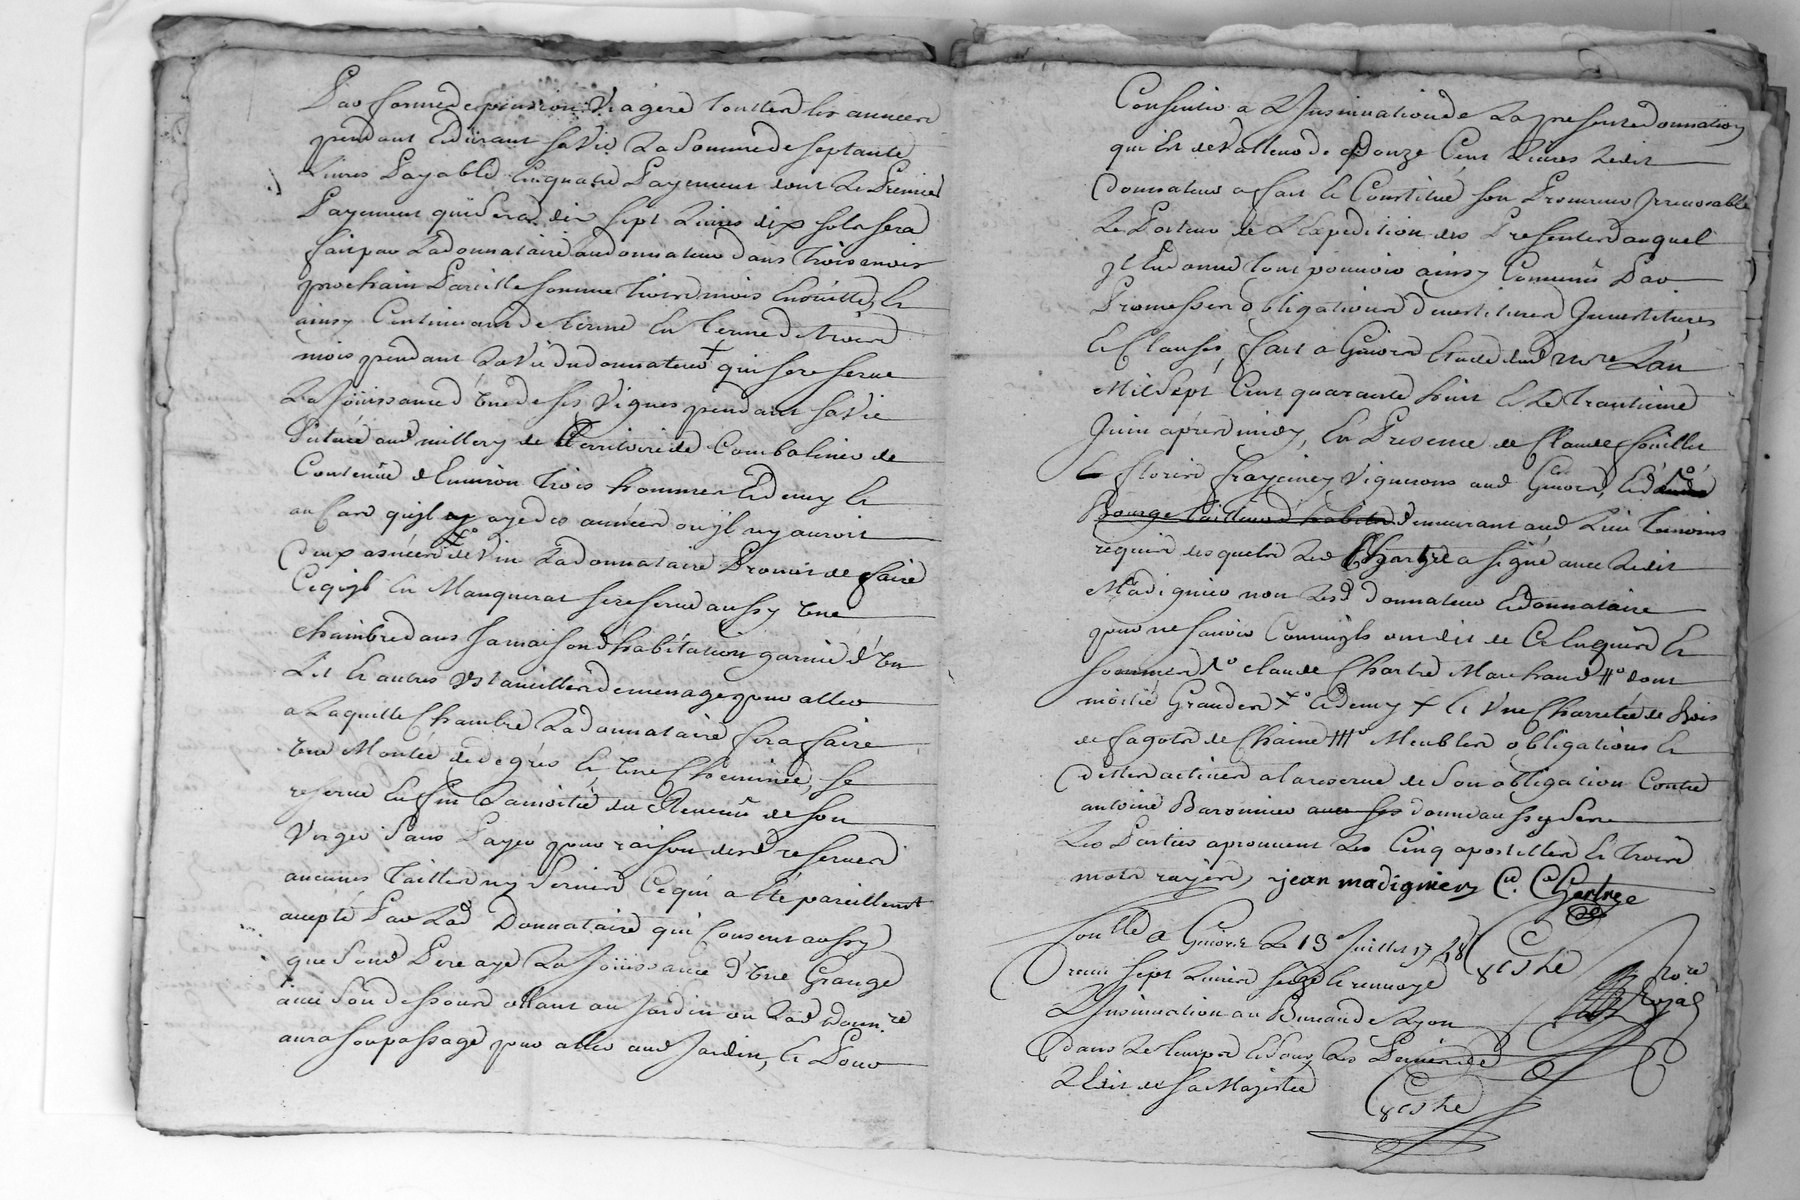 Par forme de pension Viagere touttes les années
pendant et durant sa vie La Somme de septante
Livres Payable En quatre Payement dont Le Premier
Payement qui Sera dix sept Livres dix sols sera
fait par La donnataire au donnateur dans trois mois
prochain Pareille somme trois mois Ensuitte, Et
ainsy Continuant de terme En terme de trois
mois pendant La vie du donnateur + qui se reserve
La Joüissance d'Une de ses Vignes pendant sa Vie
Scituée aud millery de territoire de Combalinier de
Contenüe d'Environ trois hommes Et demy Et
au Cas qu'jl y aye des années ou jl ny auroit
Ceux asnées de vin Ladonnataire Promet de faire
Ceqjl En Manquerat se reserve aussy Une
chambre dans sa maison d'habitation garnie d'Un
Lit Et autres Ustancilles de menage pour aller
a Laquelle Chambre La donnataire fera faire
Une Montée de degrés Et Une Cheminée, se
reserve Enfin La moitié du Revenu de son
Verger Sans Payer pour raison desd reserves
aucunes tailles ny Servis Ce qui a été pareillemt
accepté Par Lad Donnataire qui Consent aussy
que Sond Pere aye La Joüissance d'Une Grange
avec Son dessous allant au Jardin ou Lad donn.re
aura son passage pour aller aud Jardin, Et Pour
Consentir a L'Jnsinuation de La presente donnation
qui Est de Valleur de Douze Cent Livres Ledit
donnateur a fait Et Constitué son Procureur Jrrevocable
Le Porteur de L'Expedition des Presentes auquel
jl En donne tout pouvoir ainsy Convenu Par
Promesses obligations Devestitures Jnvestitures
Et Clauses, fait a Givors Etude dud nore L'an
Mil Sept Cent quarante huit Et Le trantieme
Juin aprés midy, En Presence de Claude
Et florid Vignerons aud Givors, Et
Bourge tailleur d'habits demeurant aud Lieu temoins
requis desquels Led Chartre a signé avec Ledit
Madignier non Lesd donnateur Et donnataire
pour ne sçavoir Comm'jls ont dit de Ce Enquis Et
sommés 1o claude Chartre Marchand 11o dont
moitié Grandes Xo Et demy + Et Une Charretée de Bois
de fagots de Chaine 111o Meubles obligations Et
dettes actives a la reserve de Son obligation Contre
antoine Baronnier avec ses donne aussy Sere
Les Parties aprouvent Les Cinq apostilles Et trois
mots rayés, jean madignier Ce. Chartre
Conllé a Givors Le 13e Juillet 1748
receu sept Livres seize Et renvoyé
L'Jnsinuation au Bureau de Lyon
dans Le temps Et Sous Les Peines de
L'Edit de Sa Majestée